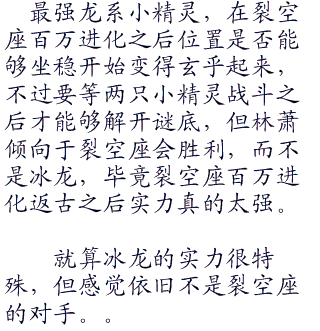 最强龙系小精灵，在裂空
座百万进化之后位置是否能
够坐稳开始变得玄乎起来，
不过要等两只小精灵战斗之
后才能够解开谜底，但林萧
倾向于裂空座会胜利，而不
是冰龙，毕竟裂空座百万进
化返古之后实力真的太强。
就算冰龙的实力很特
殊，但感觉依旧不是裂空座
的对手。。